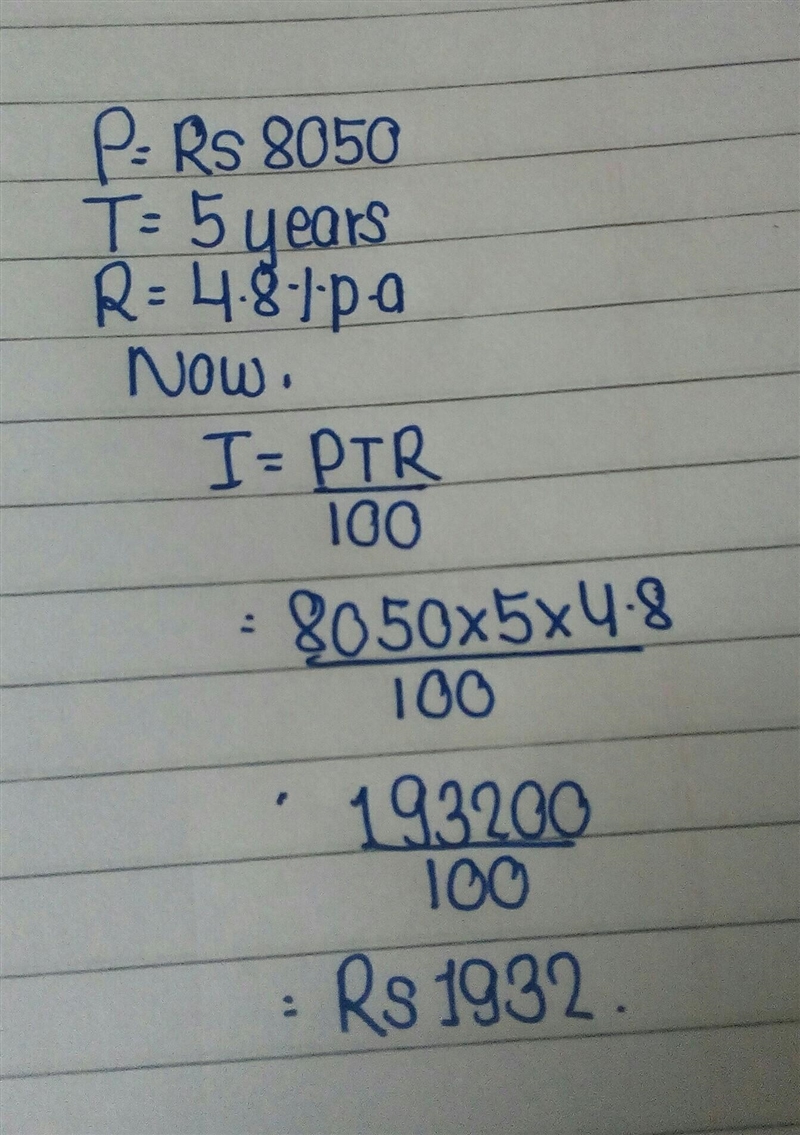 P= Rs 8050
T= 5 years
R= 4.8% p.a
Now.
I = PTR
100
= 8050x5x4.8
100
193200
100
= Rs 1932.